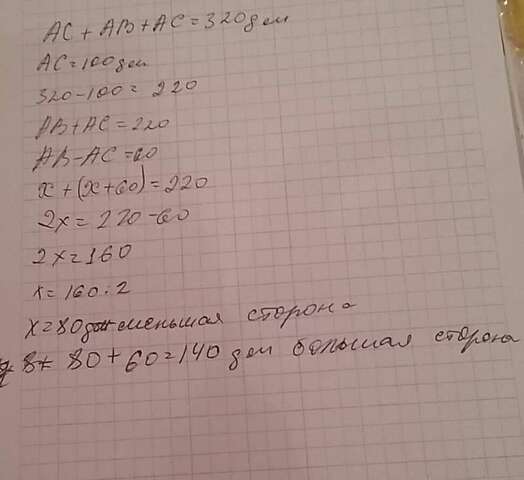 AC + AB + AC = 320 дм
AC = 100 дм
320 - 100 = 220
AB + AC = 220
AB - AC = 60
x + (x + 60) = 220
2x = 220 - 60
2x = 160
x = 160 : 2
x = 80 дм меньшая сторона
80 + 60 = 140 дм большая сторона